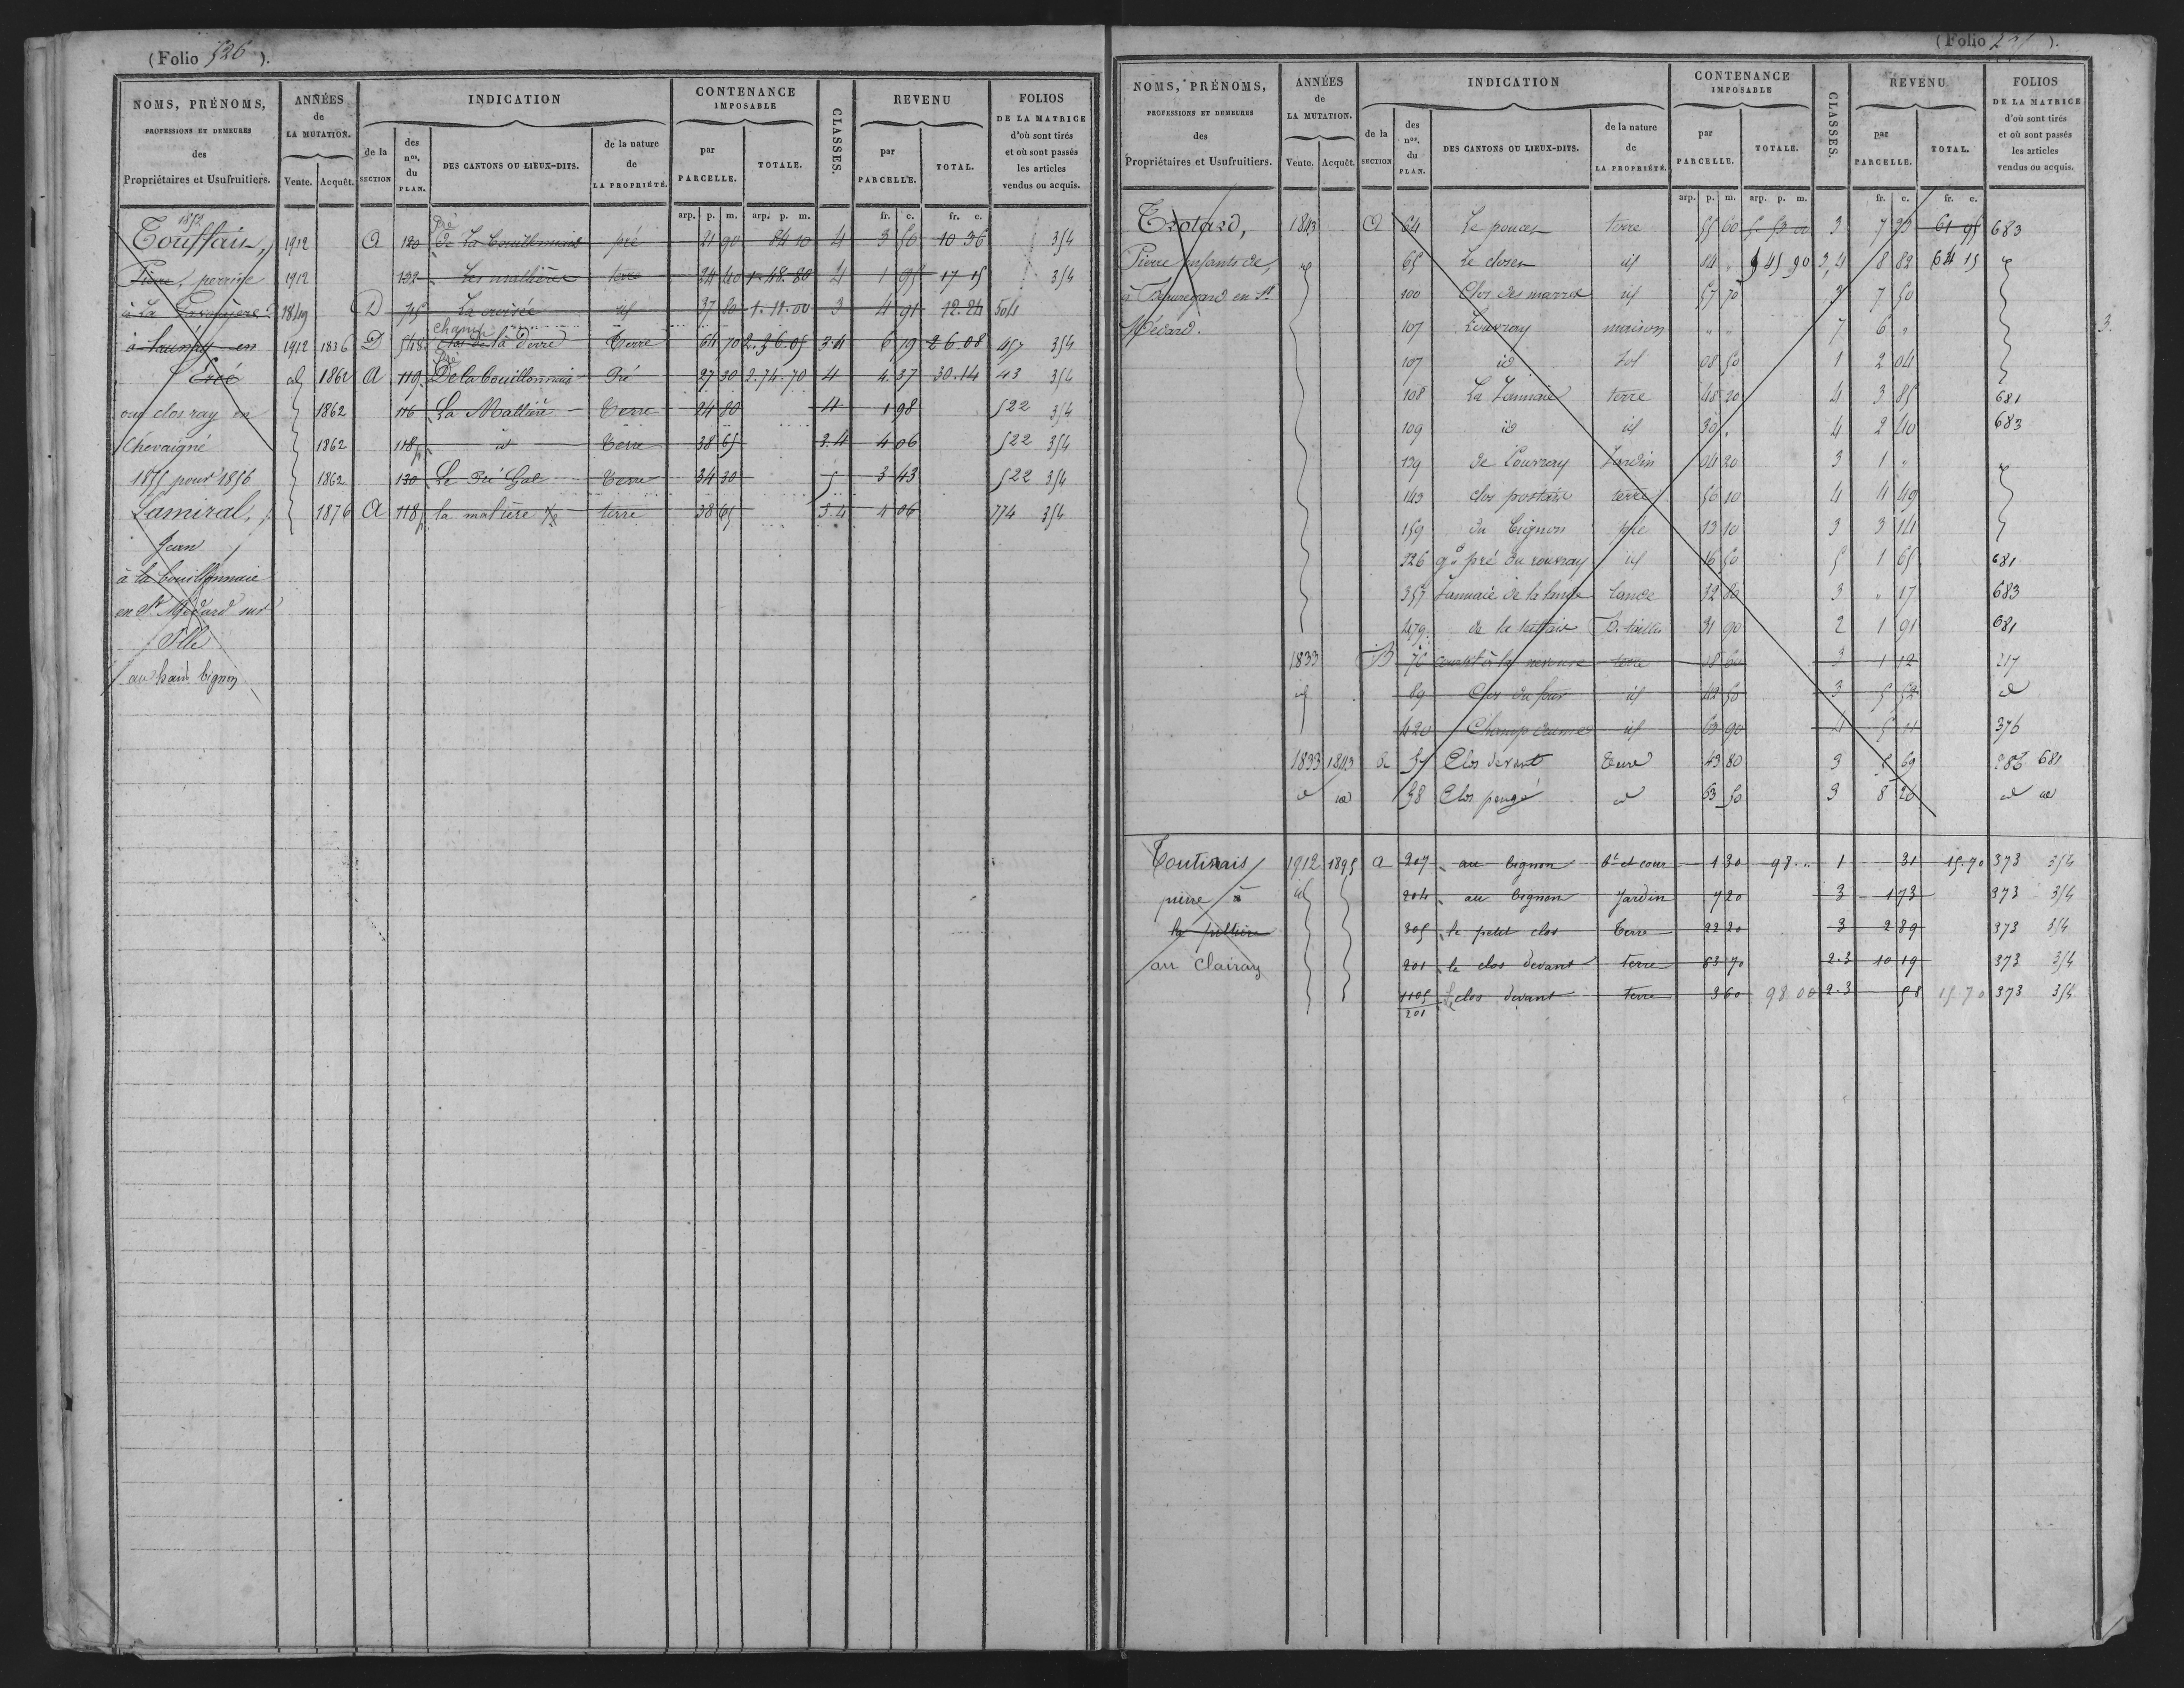 (Folio 526).
NOMS, PRÉNOMS,
PROFESSIONS ET DEMEURES
des
Propriétaires et Usufruitiers.
ANNÉES
de
LA MUTATION.
Vente. Acquêt.
INDICATION
de la
SECTION
des
nos.
du
PLAN.
DES CANTONS OU LIEUX-DITS.
de la nature
de
LA PROPRIÉTÉ.
CONTENANCE
IMPOSABLE
par
PARCELLE.
TOTALE.
CLASSES.
REVENU
par
PARCELLE.
TOTAL.
FOLIOS
DE LA MATRICE
d'où sont tirés
et où sont passés
les articles
vendus ou acquis.
arp. p. m. arp. p. m. fr. c. fr. c.
1852
Pré
Touffais, 1912 A 120 de La bouillonnais pré 21 90 84 10 4 3 50 10 36 354
Pierre, perrine 1912 132 Les mallières terre 24 40 1.48.80 4 1 95 17 15 354
à la 1849 D 75 La croisée id 37 80 1.11.00 3 4 91 12.24 504
champ
à Launay en 1912 1836 D 548 clos de la Derre Terre 64 70 2.36.05 3.4 6 19 26.08 457 354
Pré
Ercé id 1862 A 119 De la bouillonnais Pré 27 30 2.74.70 4 4.37 30.14 43 354
au clos ray en 1862 116 La Mallière Terre 24 80 4 1 98 522 354
Chevaigné 1862 118p id Terre 38 65 3.4 4 06 522 354
1855 pour 1856 1862 130 Le Pré Gal Terre 34 30 5 3 43 522 354
Lamiral, 1876 A 118p la matière terre 38 65 3.4 4 06 774 354
Jean
à la bouillonnaie
en St Médard sur
Ille
au haut bignon
(Folio
NOMS, PRÉNOMS,
PROFESSIONS ET DEMEURES
des
Propriétaires et Usufruitiers.
ANNÉES
de
LA MUTATION.
Vente. Acquêt.
INDICATION
de la
SECTION
des
nos.
du
PLAN.
DES CANTONS OU LIEUX-DITS.
de la nature
de
LA PROPRIÉTÉ.
CONTENANCE
IMPOSABLE
par
PARCELLE.
TOTALE.
CLASSES.
REVENU
par
PARCELLE.
TOTAL.
FOLIOS
DE LA MATRICE
d'où sont tirés
et où sont passés
les articles
vendus ou acquis.
arp. p. m. arp. p. m. fr. c. fr. c.
Trotard, 1843 A 64 Le pouces terre 55 60 3 7 93 61 95 683
Pierre enfants de, id 65 Le closer id 84 " 5 45 90 3,4 8 82 64 15 id
à Beauregard en St 100 Clos des marres id 57 70 3 7 50
Médard. 107 Louvray maison " " 7 6 " 3.
107 id Sol 08 50 1 2 04
108 La Lannaie terre 48 20 4 3 85 681
109 id id 30 " 4 2 40 683
139 de Louvray Jardin 04 20 3 1 " id
143 clos terre 56 10 4 4 49
159 du bignon pré 13 10 3 3 14
326 gd pré du rouvray id 16 50 5 1 65 681
357 Lannaie de la lande lande 32 80 3 " 17 683
479 de la B. taillis 31 90 2 1 91 681
1833 B 76 terre 18 60 3 1 12 217
id 89 Clos du four id 42 50 3 5 52 id
420 id 63 90 4 5 11 376
1833 1843 57 Clos devant Terre 43 80 3 5 69 286 681
id id 58 Clos id 63 50 3 8 26 id id
Toutirais 1912 1895 a 207 au bignon bt et cour 1 30 98 " 1 31 15.70 373 354
pierre à id 204 au bignon Jardin 7 20 3 1 73 373 354
305 le petit clos Terre 22 20 3 2 89 373 354
au Clairay 201 le clos devant terre 63 70 2.3 10 19 373 354
1105 le clos devant terre 3 60 98.00 2.3 58 15 70 373 354
201